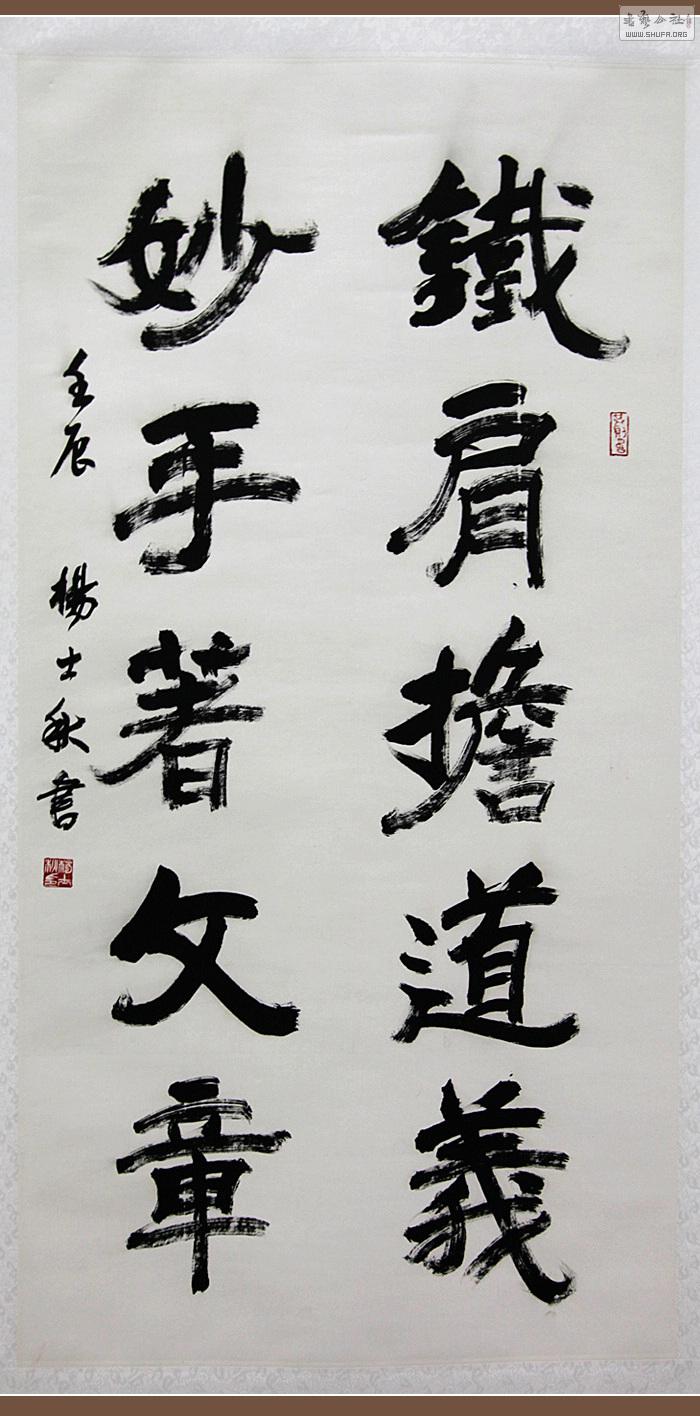 鐵肩擔道義
妙手著文章
壬辰 楊士秋書
書藝公社
WWW.SHUFA.ORG